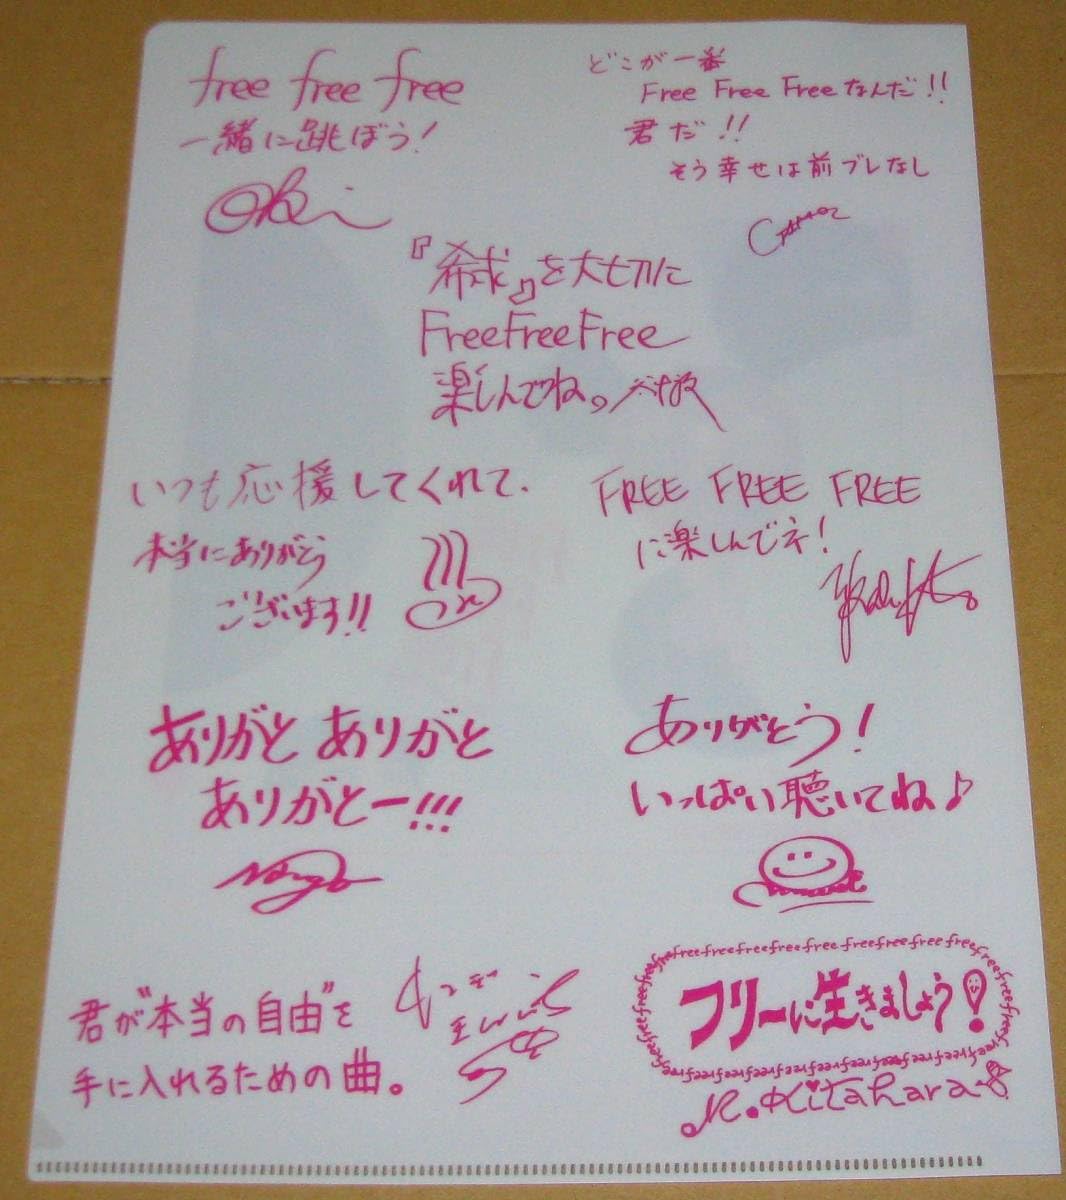 free free free
一緒に跳ぼう!
どこが一番
Free Free Freeなんだ!!
君だ!!
そう幸せは前ブレなし
『希求』を大切に
FreeFreeFree
楽しんでね。
いつも応援してくれて、
本当にありがとう
ございます!!
FREE FREE FREE
に楽しんでネ!
ありがと ありがと
ありがとー!!!
ありがとう!
いっぱい聴いてね♪
君が"本当の自由"を
手に入れるための曲。
freefreefreefreefree freefreefree free
フリーに生きましょう!
R.Kitahara